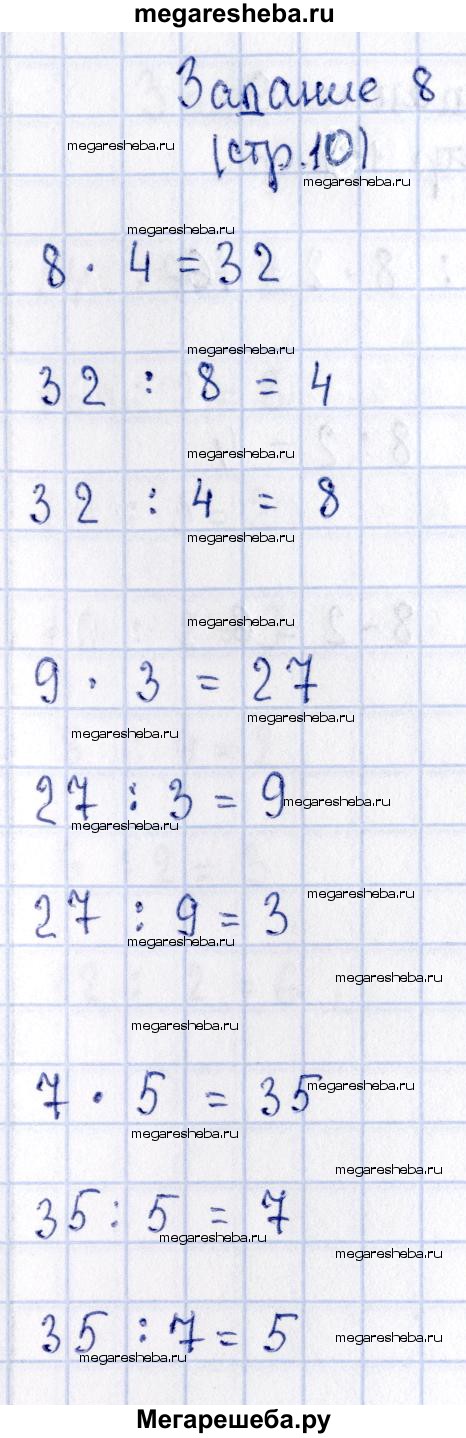 megaresheba.ru
Задание 8
megaresheba.ru
(стр.10)
megaresheba.ru
megaresheba.ru
8 · 4 = 32
megaresheba.ru
32 : 8 = 4
megaresheba.ru
32 : 4 = 8
megaresheba.ru
megaresheba.ru
9 · 3 = 27
megaresheba.ru
megaresheba.ru
27 : 3 = 9
megaresheba.ru
megaresheba.ru
megaresheba.ru
27 : 9 = 3
megaresheba.ru
megaresheba.ru
megaresheba.ru
7 · 5 = 35
megaresheba.ru
megaresheba.ru
megaresheba.ru
35 : 5 = 7
megaresheba.ru
megaresheba.ru
35 : 7 = 5
megaresheba.ru
megaresheba.ru
Мегарешеба.ру